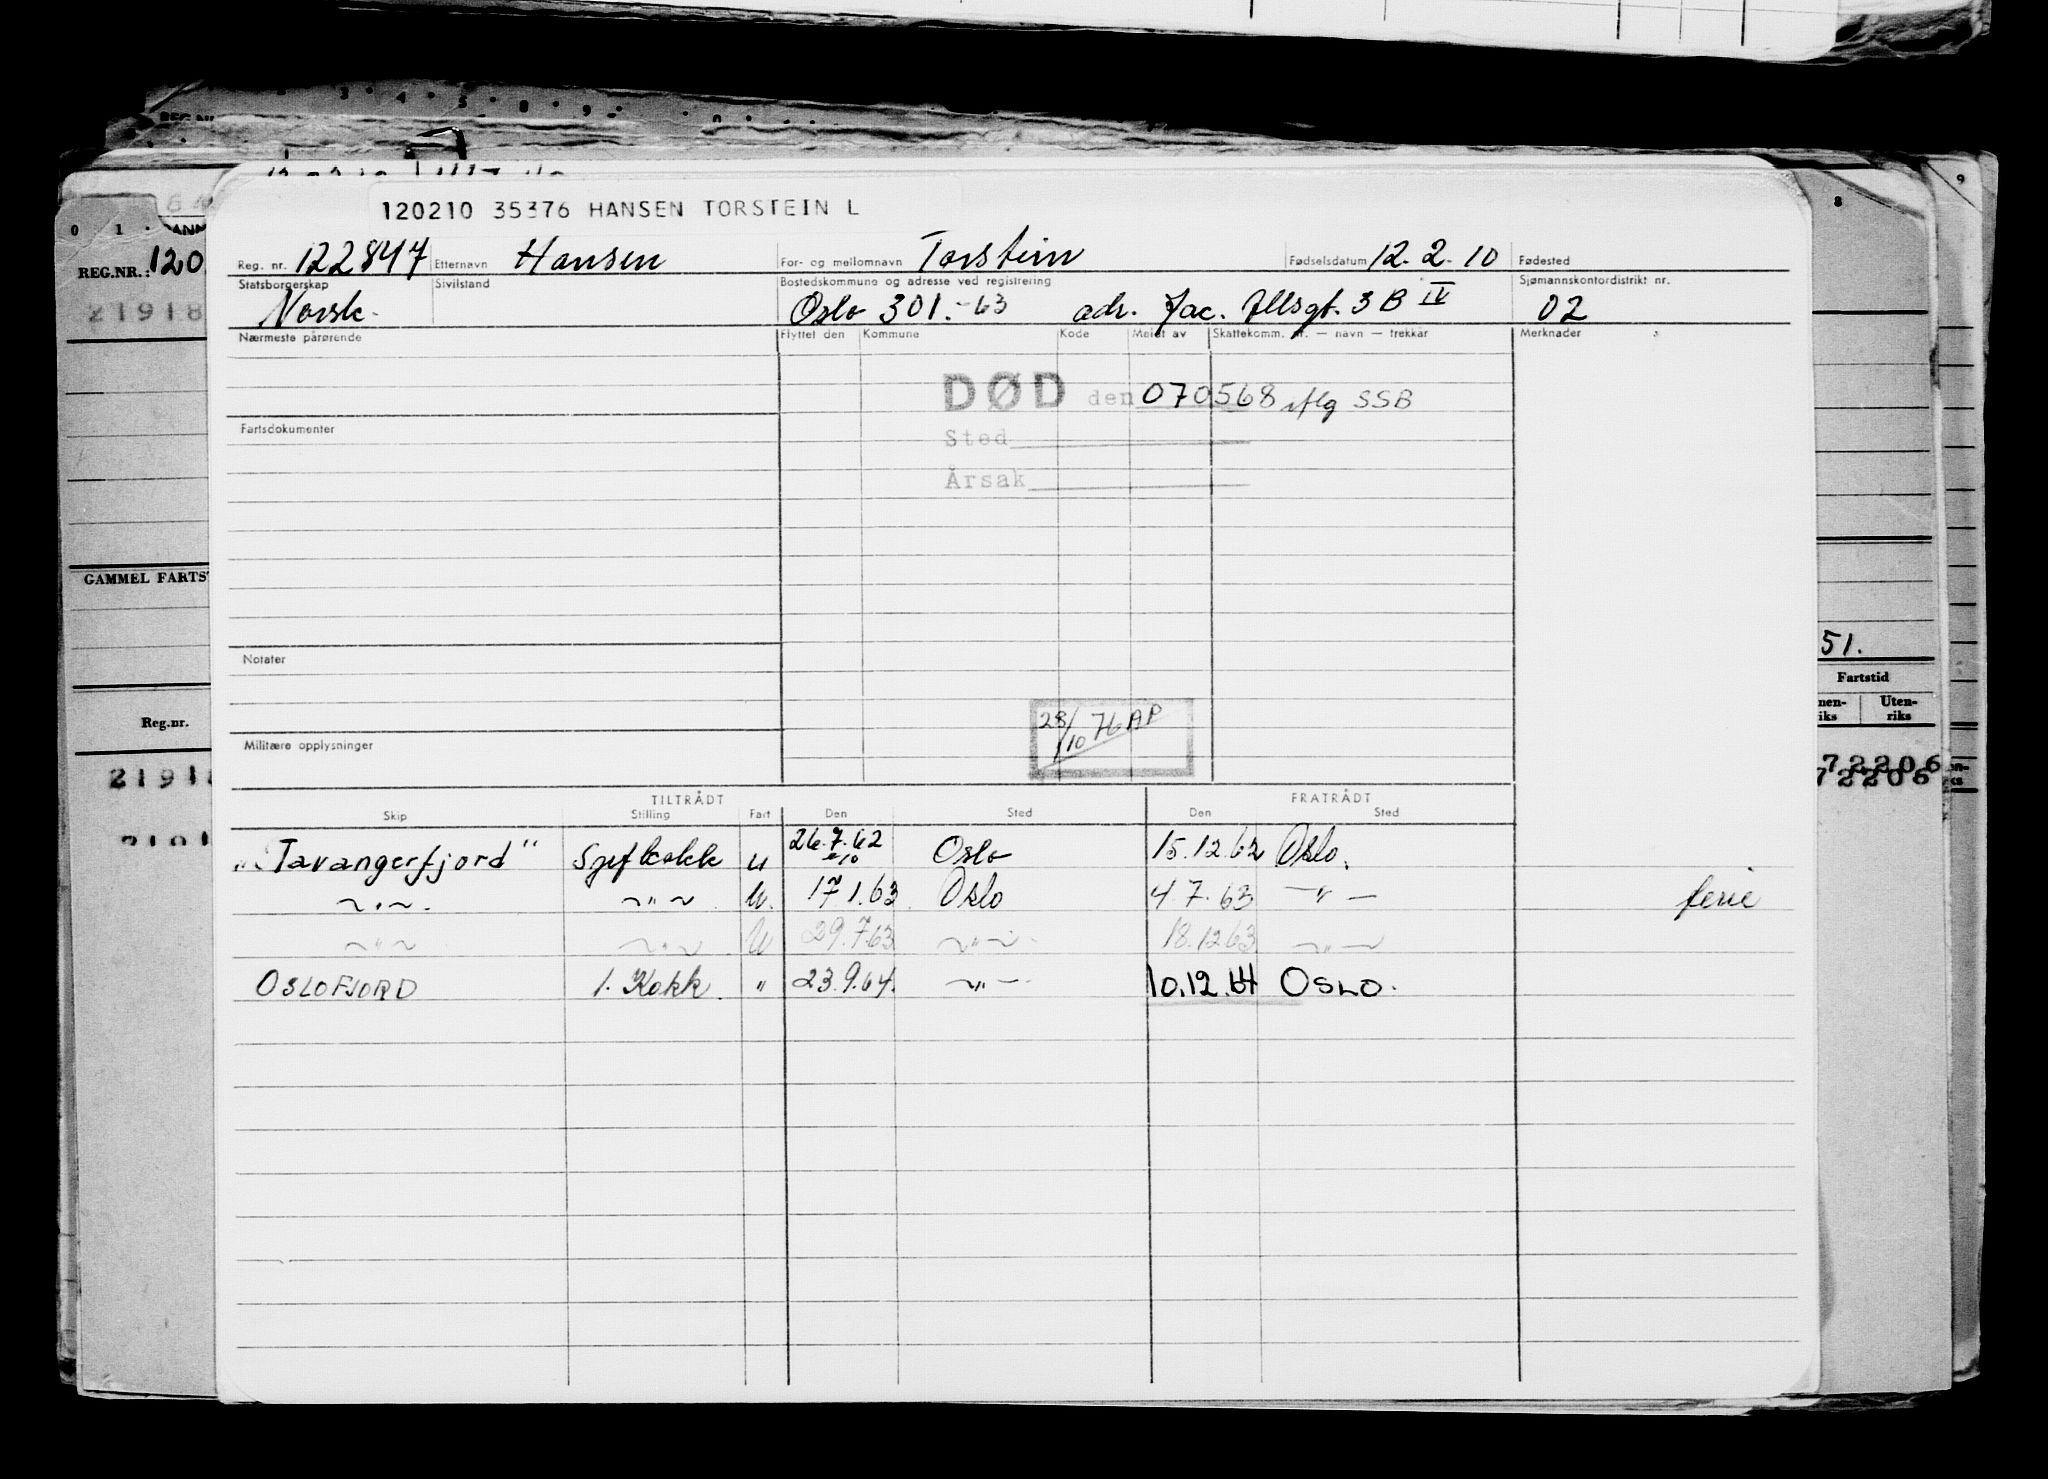 0 1
8
9
REG.NR.: 120
21918
GAMMEL FARTS
51.
Fartstid
Uten-
riks
Reg.nr.
72206
72206
120210 35376 HANSEN TORSTEIN L
Reg. nr. 122847 Etternavn Hansen For- og mellomnavn Torstein Fødselsdatum 12.2.10 Fødested
Statsborgerskap Sivilstand Bostedskommune og adresse ved registrering Sjømannskontordistrikt nr.
Norsk. Oslo 301.-63 adr. Jac. Allsgt. 3 B IV 02
Nærmeste pårørende Flyttet den Kommune Kode Meldt av Skattekomm. nr. — navn — trekkår Merknader
DØD den 070568 iflg SSB
Fartsdokumenter
Sted
Årsak
Notater
28/10 76 AP
Militære opplysninger
TILTRÅDT FRATRÅDT
Skip Stilling Fart Den Sted Den Sted
"Tavangerfjord" Sjefkokk U 26.7.62 Oslo 15.12.62 Oslo.
~"~ ~"~ U. 17 1.63 Oslo 4.7.63 —"— ferie
~"~ ~"~ U 29.7.63 ~"~ 18.12.63 ~"~
OSLOFJORD 1. Kokk " 23.9.64. ~"~ 10.12.64 OSLO.